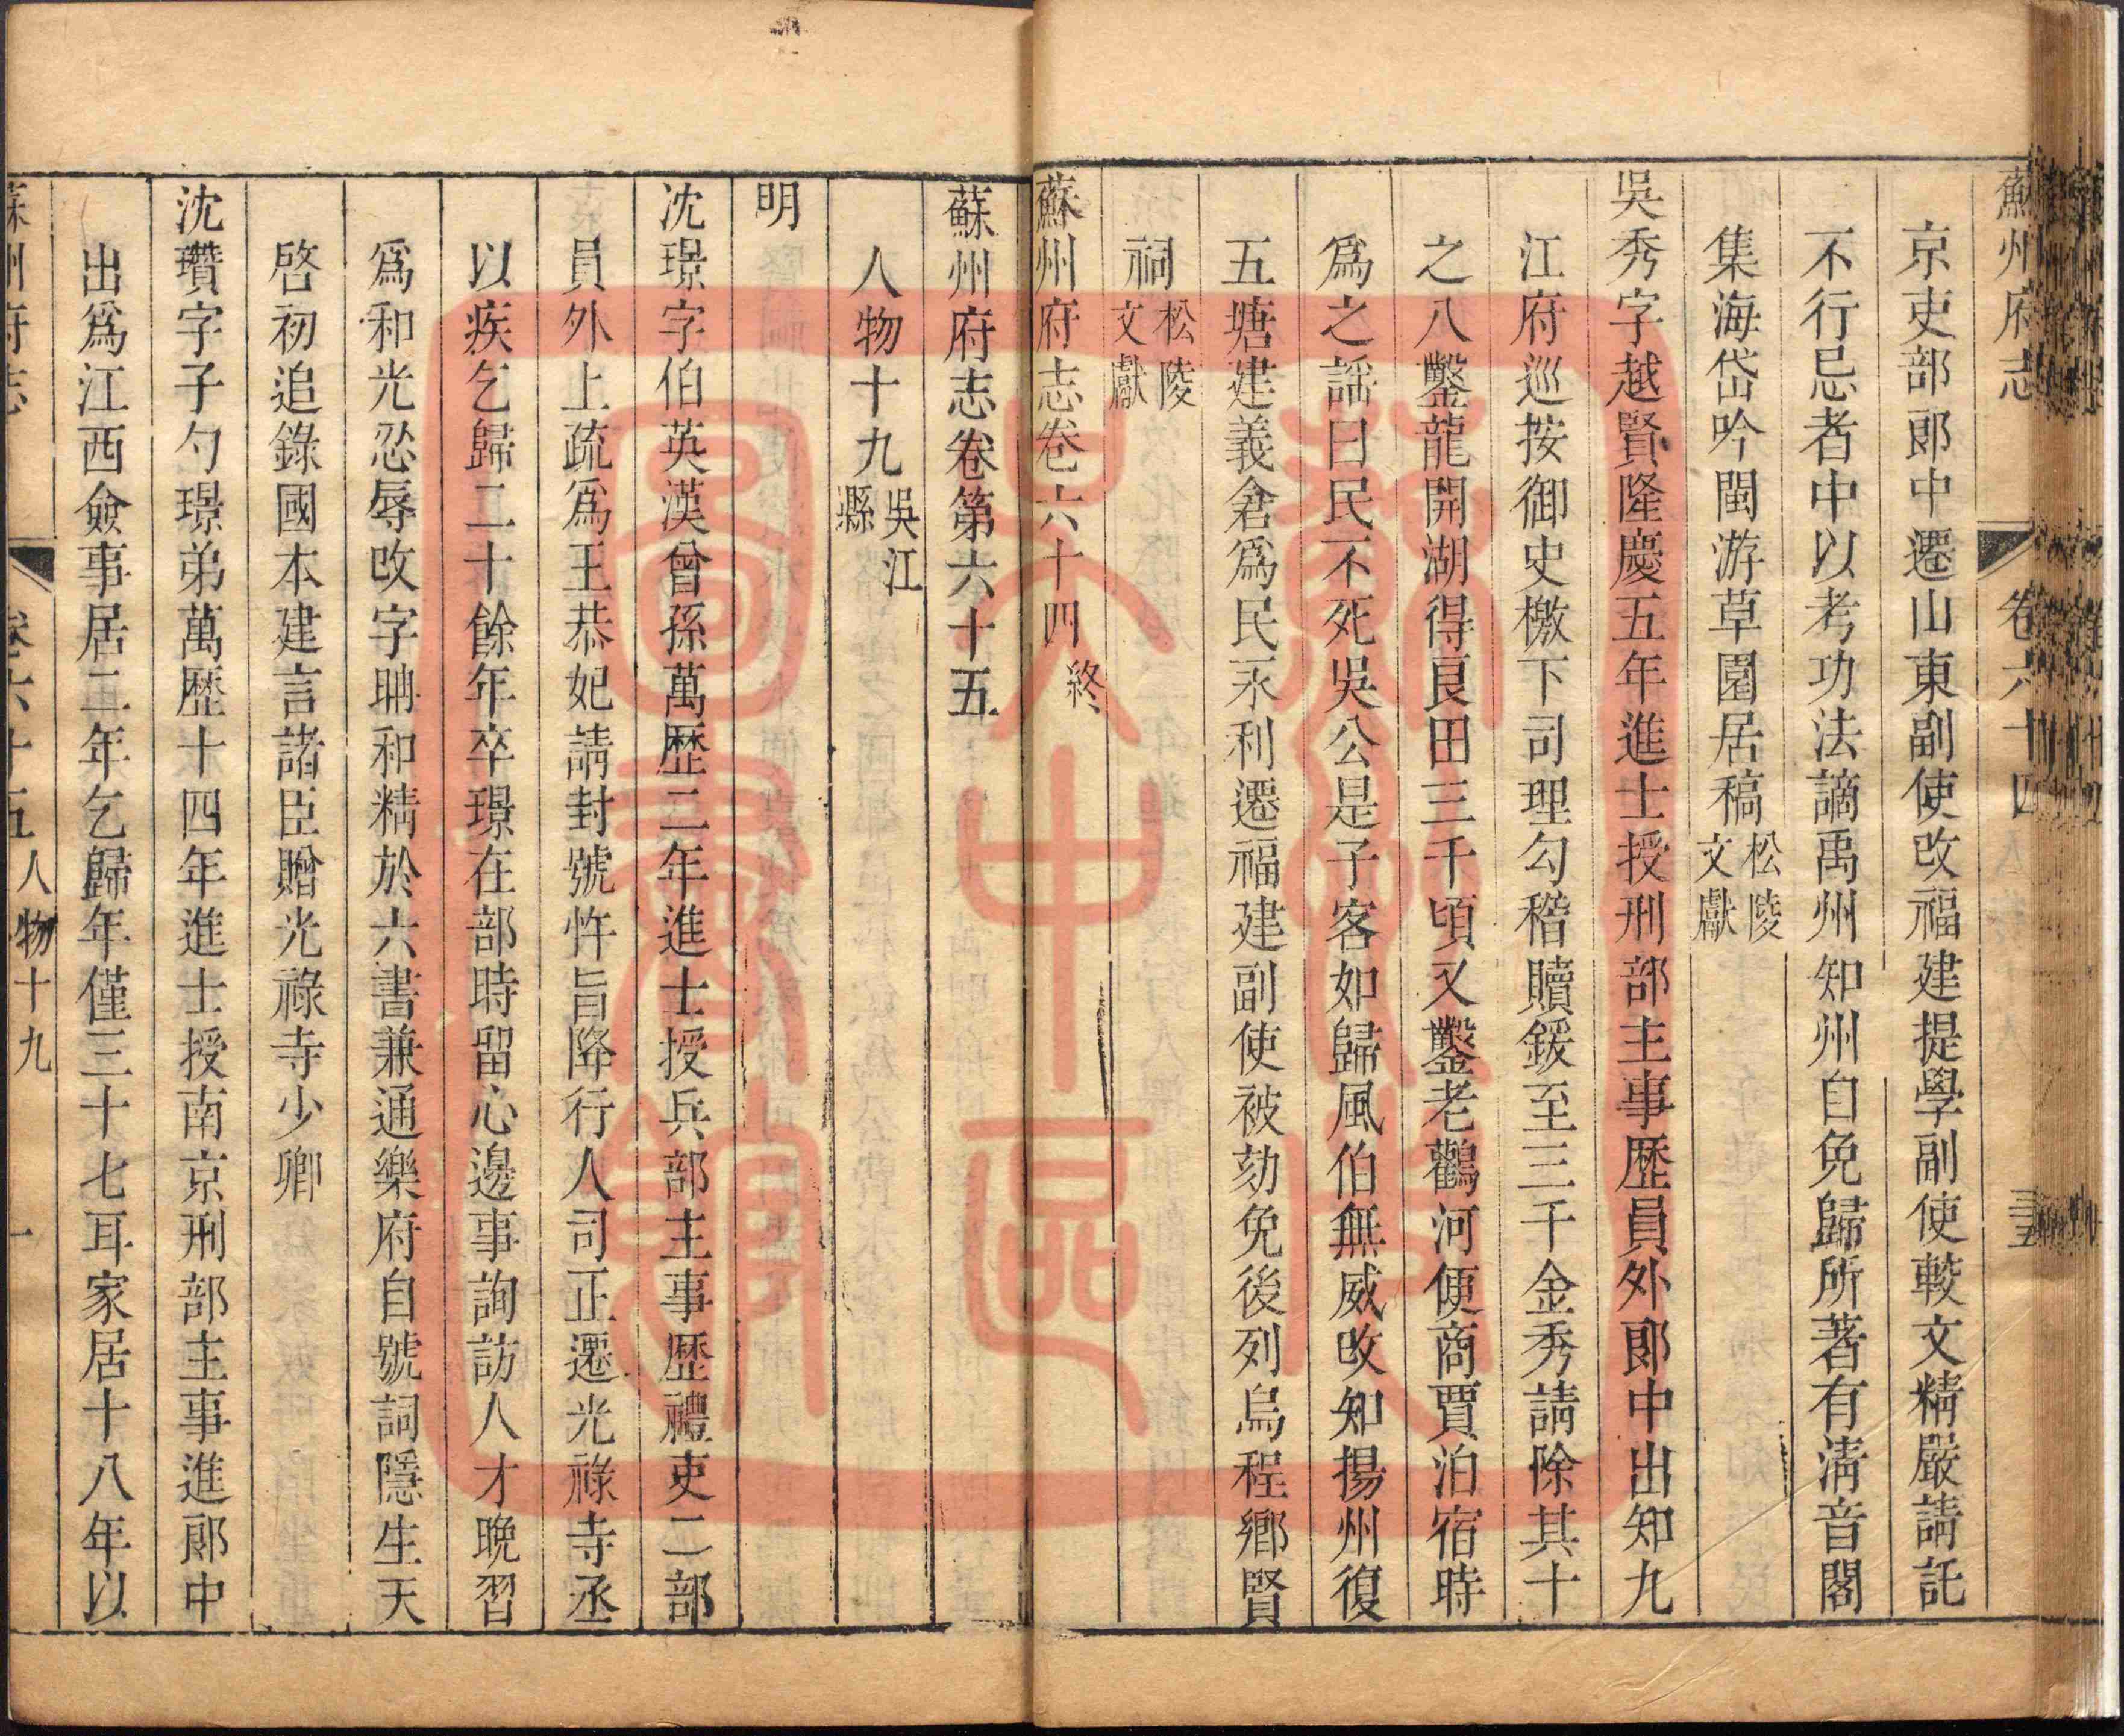 蘇州府志 卷六十四
京吏部郎中遷山東副使改福建提學副使較文精嚴請託
不行忌者中以考功法謫禹州知州自免歸所著有淸音閣
集海岱吟閩游草園居稿松陵文獻
吳秀字越賢隆慶五年進士授刑部主事歷員外郎中出知九
江府巡按御史檄下司理勾稽贖鍰至三千金秀請除其十
之八鑿龍開湖得良田三千頃又鑿老鸛河便商賈泊宿時
爲之謡曰民不死吳公是子客如歸風伯無威改知揚州復
五塘建義倉爲民永利遷福建副使被劾免後列烏程鄉賢
祠松陵文獻
蘇州府志卷六十四終
蘇州府志卷第六十五
人物十九吳江縣
明
沈璟字伯英漢曾孫萬歷二年進士授兵部主事歷禮吏二部
員外上疏爲王恭妃請封號忤旨降行人司正遷光祿寺丞
以疾乞歸二十餘年卒璟在部時留心邊事詢訪人才晚習
爲和光忍辱改字聃和精於六書兼通樂府自號詞隱生天
啓初追錄國本建言諸臣贈光祿寺少卿
沈瓚字子勺璟弟萬歷十四年進士授南京刑部主事進郎中
出爲江西僉事居二年乞歸年僅三十七耳家居十八年以
蘇州府志 卷六十五人物十九 一